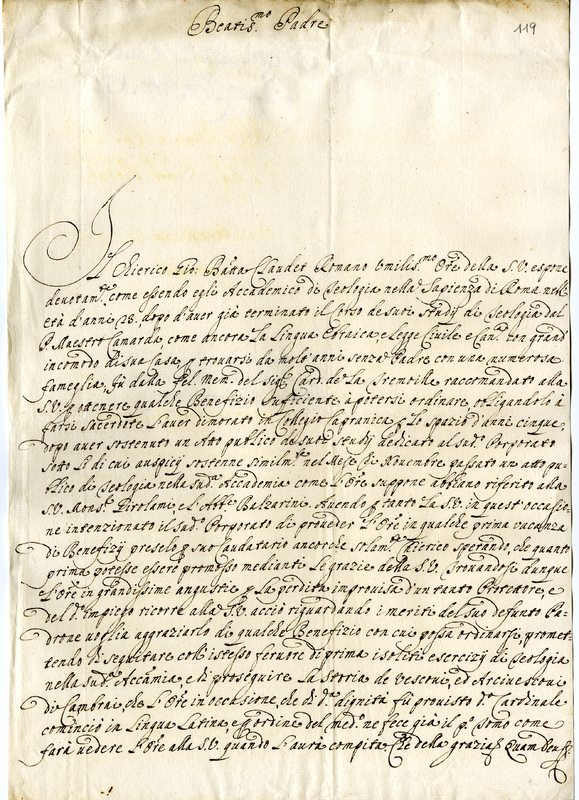 Beatis.mo Padre
119
Il Chierico Gio: Batta Claudet Romano Umilis.mo Ore della S.V. espone
devotam.te come essendo egli Accademico di Teologia nella Sapienza di Roma nell'
età d'anni 28. dopo d'aver già terminato il Corso de suoi Studij di Teologia dal
P. Maestro Camarda, come ancora la Lingua Ebraica, e Legge Civile e Can.ca con grand'
incomodo di sua Casa, p trovarsi da molt'anni senza Padre con una numerosa
fameglia, fù dalla fel. mem. del Sig.r Card. de la Tremoille raccomandato alla
S.V. p ottenere qualche Benefizio sufficiente à potersi ordinare, obligandolo à
farsi Sacerdote l'aver dimorato in Collegio Capranica p lo spazio d'anni cinque,
dopo aver sostenuto un Atto publico de suoi Studij dedicato al sud.o Porporato
sotto li di cui auspicij sostenne similm.te nel Mese di Novembre passato un atto pu-
blico di Teologia nella sud.a Accademia come l'Ore suppone abbiano riferito alla
S.V. Mons.r Girolami, e l'Abb.e Balzarini. Avendo p tanto la S.V. in quest'occasio-
ne intenzionato il sud.o Porporato di proveder l'Ore in qualche prima vacanza
di Benefizij preselo p suo Caudatario ancorche solam.te Chierico sperando, che quanto
prima potesse essere promosso medianti le grazie della S.V. Trovandosi dunque
l'Ore in grandissime angustie p la perdita improvisa d'un tanto Protettore, e
del d.o Impiego ricorre alla S.V. acciò riguardando i meriti del suo defunto Pa-
drone voglia aggraziarlo di qualche Benefizio con cui possa ordinarsi, promet-
tendo di seguitare coll'istesso fervore di prima i soliti esercizij di Teologia
nella sud.a Accãmia, e di proseguire la Storia de Vescovi, ed Arcivescovi
di Cambrai, che l'Ore in occasione, che di d.a dignità fù provisto d.o Cardinale
cominciò in Lingua Latina, e p ordine del med.mo ne fece già il p.o Tomo come
farà vedere l'Ore alla S.V. quando l'avrà compita, Che della grazia &c. Quam Deus &c.